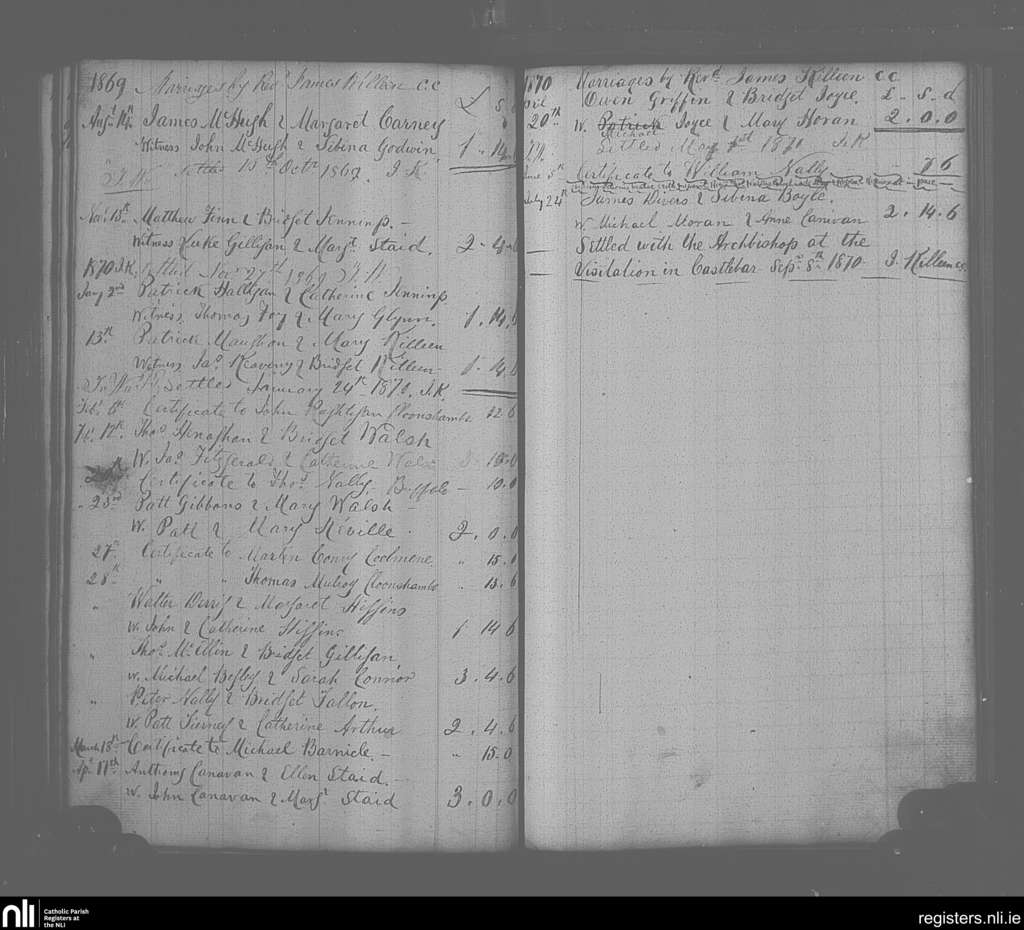 1869 Marriages by Revd James Killeen C.C
£ s d
Augt 14th James McHugh & Margaret Carney
Witness John McHugh & Sibina Godwin 1.14.6
J.K Settled 15th Octr 1869. J.K
Novr 15th Matthew Finn & Bridget Jennings. -
Witness Luke Gilligan & Margt Staid. 2.4.6
1870 J.K. Settled Novr 27th 1869 J.K
Jany 2nd Patrick Halligan & Catherine Jennings
Witness Thomas Foy & Mary Glynn. 1.14.6
13th Patrick Maughon & Mary Killeen
Witness Jas Keaveny & Bridget Killeen 1.14.6
Settled January 24th 1870. J.K.
Feb. 6th Certificate to John Cloonshambo 12.6
Fb. 12th Thos Henaghan & Bridget Walsh
W. Jas Fitzgerald & Catherine Walsh 15.0
Certificate to Thos Nally. Buffalo - 10.0
" 23rd Patt Gibbons & Mary Walsh -
W. Patt & Mary Neville. 2.0.0
27th Certificate to Martin Conry Coolmene " 15.0
28th " " Thomas Mulroy Cloonshambo " 13.6
" Walter Derrig & Margaret Higgins
W. John & Catherine Higgins 1 14 6
" Thos McEllin & Bridget Gilligan
W. Michael Begley & Sarah Connor 3.4.6
" Peter Nally & Bridget Fallon.
W. Patt Tierney & Catherine Arthur 2.4.6
March 18th Certificate to Michael Barnicle. - " 15.0
Apl 17th Anthony Canavan & Ellen Staid. -
W. John Canavan & Margt Staid 3.0.0
1870 Marriages by Revd James Killeen CC
Owen Griffin & Bridget Joyce. £ - s - d
20th W. Patrick Joyce & Mary Horan 2.0.0
Michael
Settled May 1st 1870 J.K
June 5th Certificate to William Nally 7 6
July 24th James Divers & Sibina Boyle.
W. Michael Moran & Anne Canivan 2.14.6
Settled with the Archbishop at the
Visitation in Castlebar Sepr 8th 1870 - J. Killeen CC.
nli Catholic Parish
Registers at
the NLI
registers.nli.ie